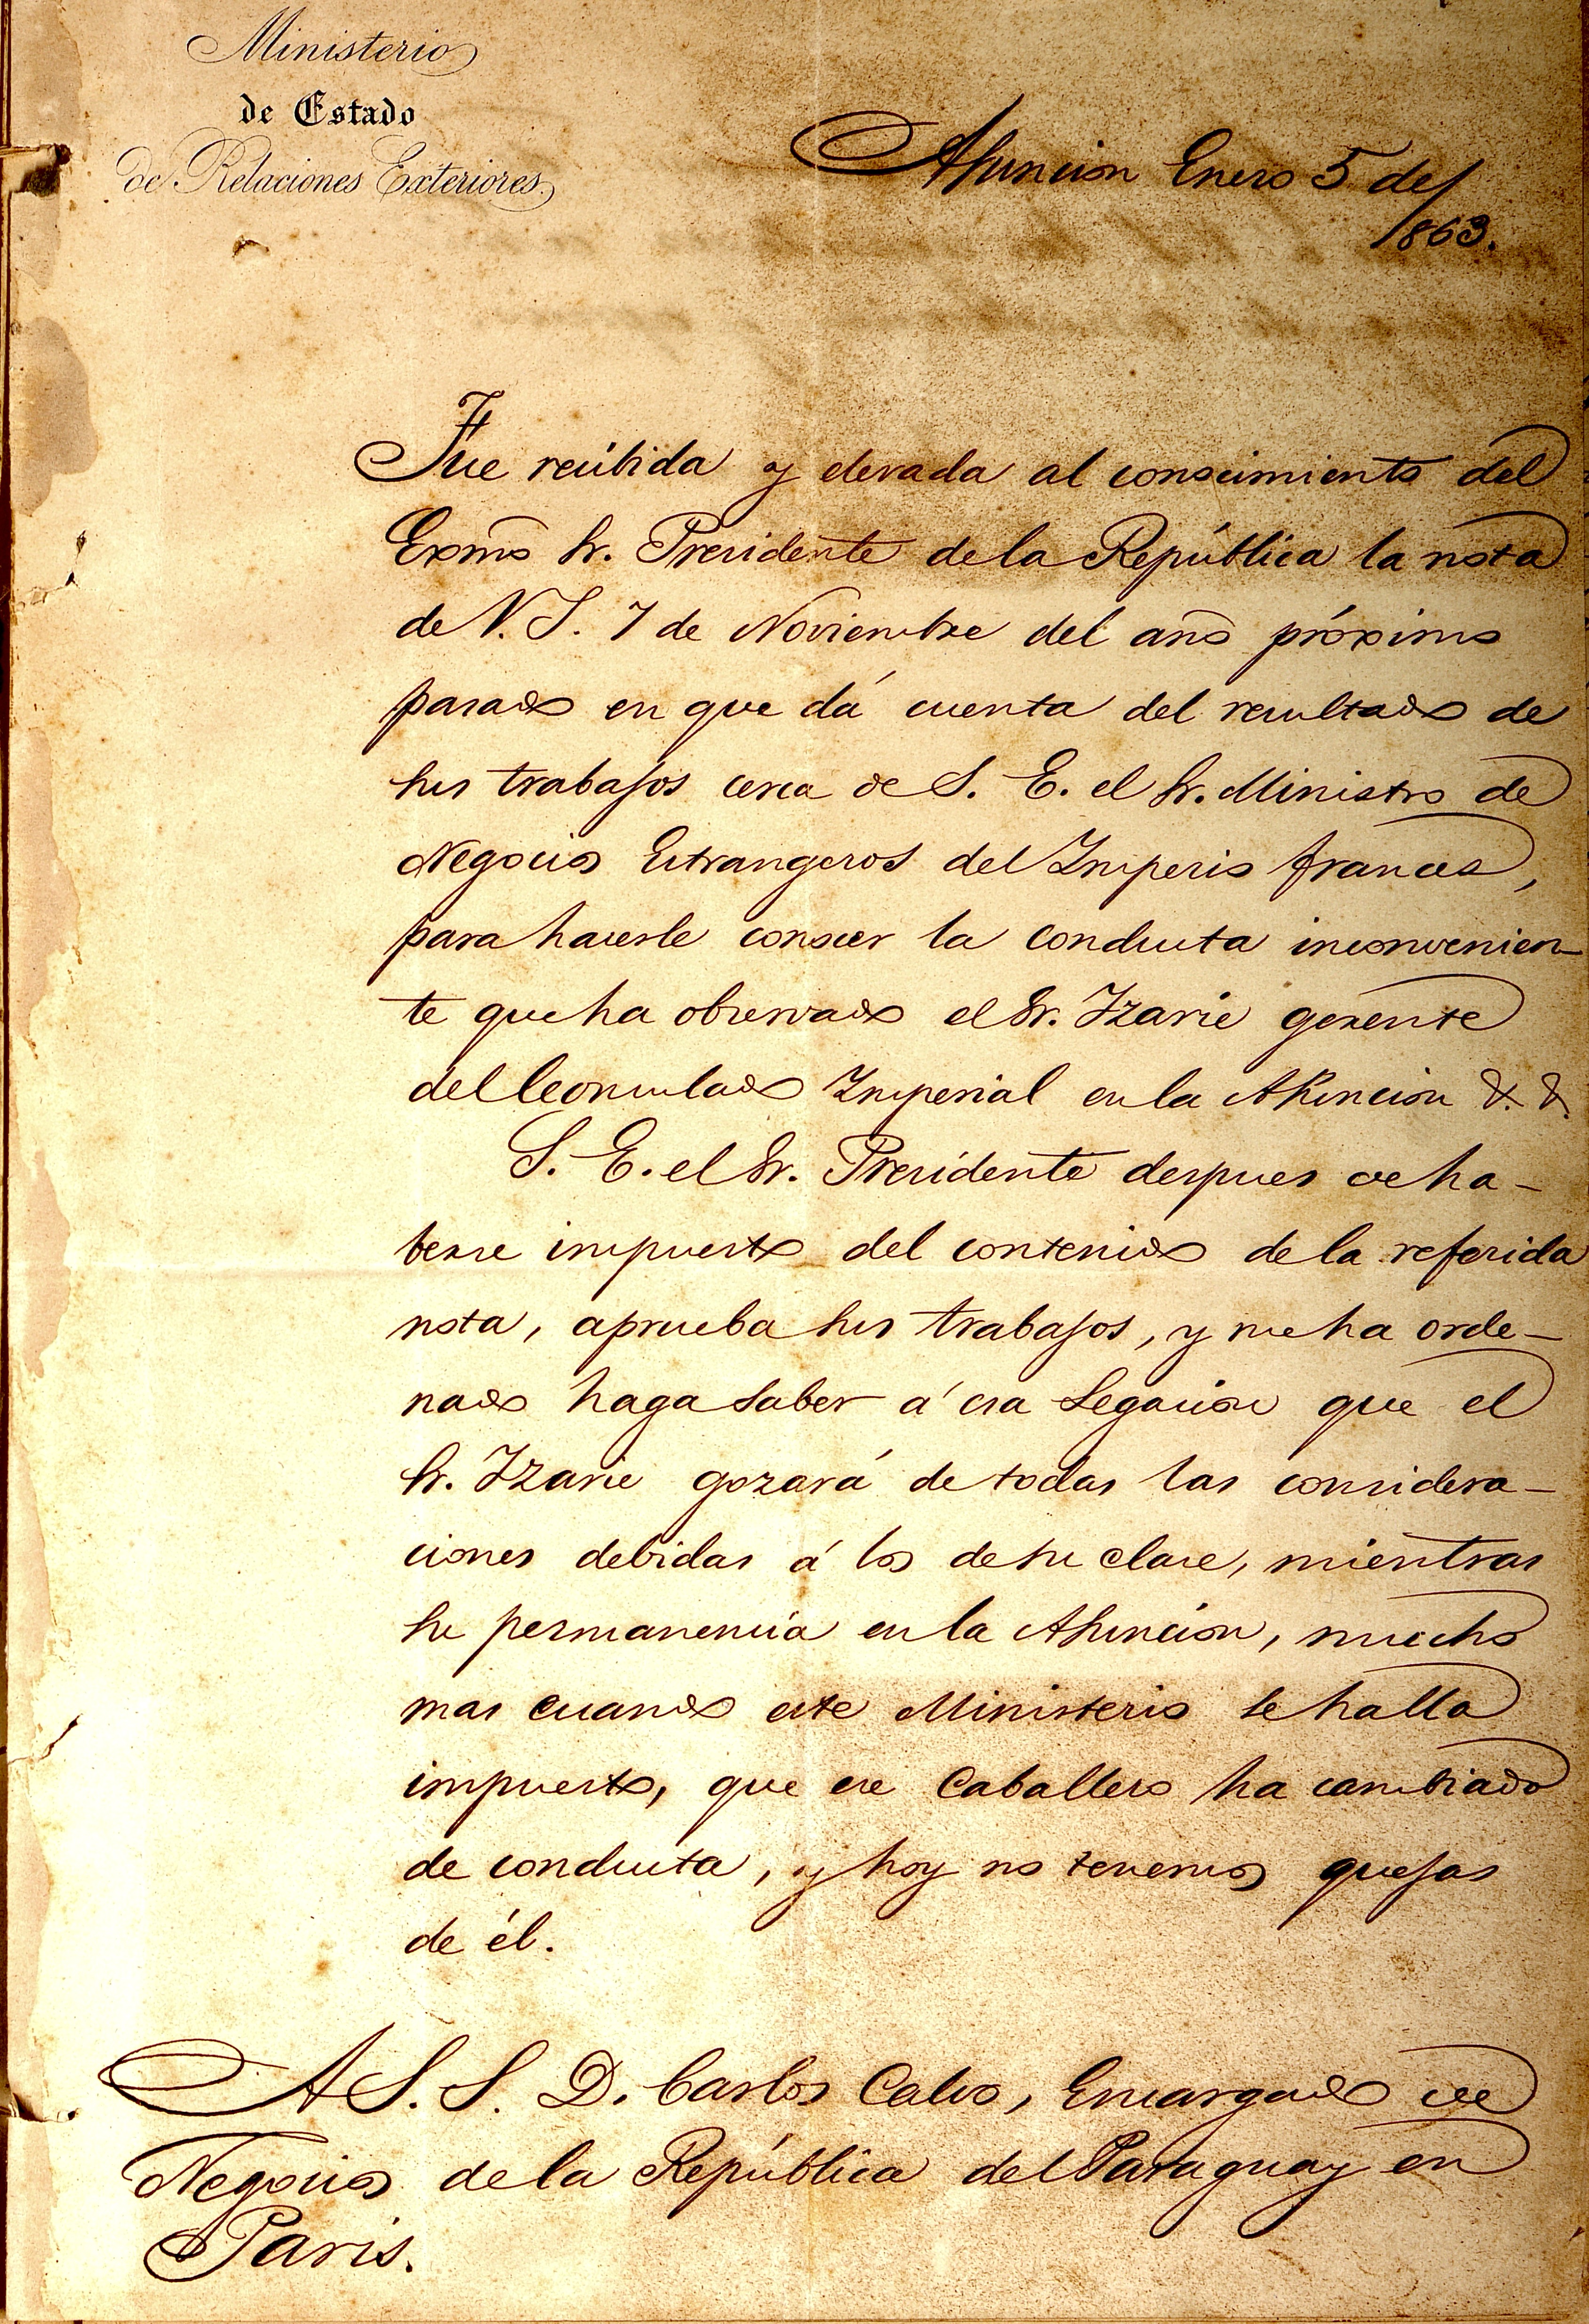 Ministerio
de Estado
de Relaciones Exteriores.
Asuncion Enero 5 de
1863.
Fue recibida y elevada al conocimiento del
Exmõ Sr. Presidente de la República la nota
de V. S. 7 de Noviembre del año próximo
pasado en que dá cuenta del resultado de
sus trabajos cerca de S. E. el Sr. Ministro de
Negocios Estrangeros del Imperio frances,
para hacerle conocer la conducta inconvenien-
te que ha observado el Sr. Izarie gerente
del Consulado Imperial en la Asuncion &. &.
S. E. el Sr. Presidente despues de ha-
berse impuesto del contenido de la referida
nota, aprueba sus trabajos, y me ha orde-
nado haga saber á esa Legacion que el
Sr. Izarie gozará de todas las considera-
ciones debidas á los de su clase, mientras
su permanencia en la Asuncion, mucho
mas cuando este Ministerio se halla
impuesto, que ese Caballero ha cambiado
de conducta, y hoy no tenemos quejas
de él.
A S. S. D. Carlos Calvo, Encargado de
Negocios de la República del Paraguay en
Paris.